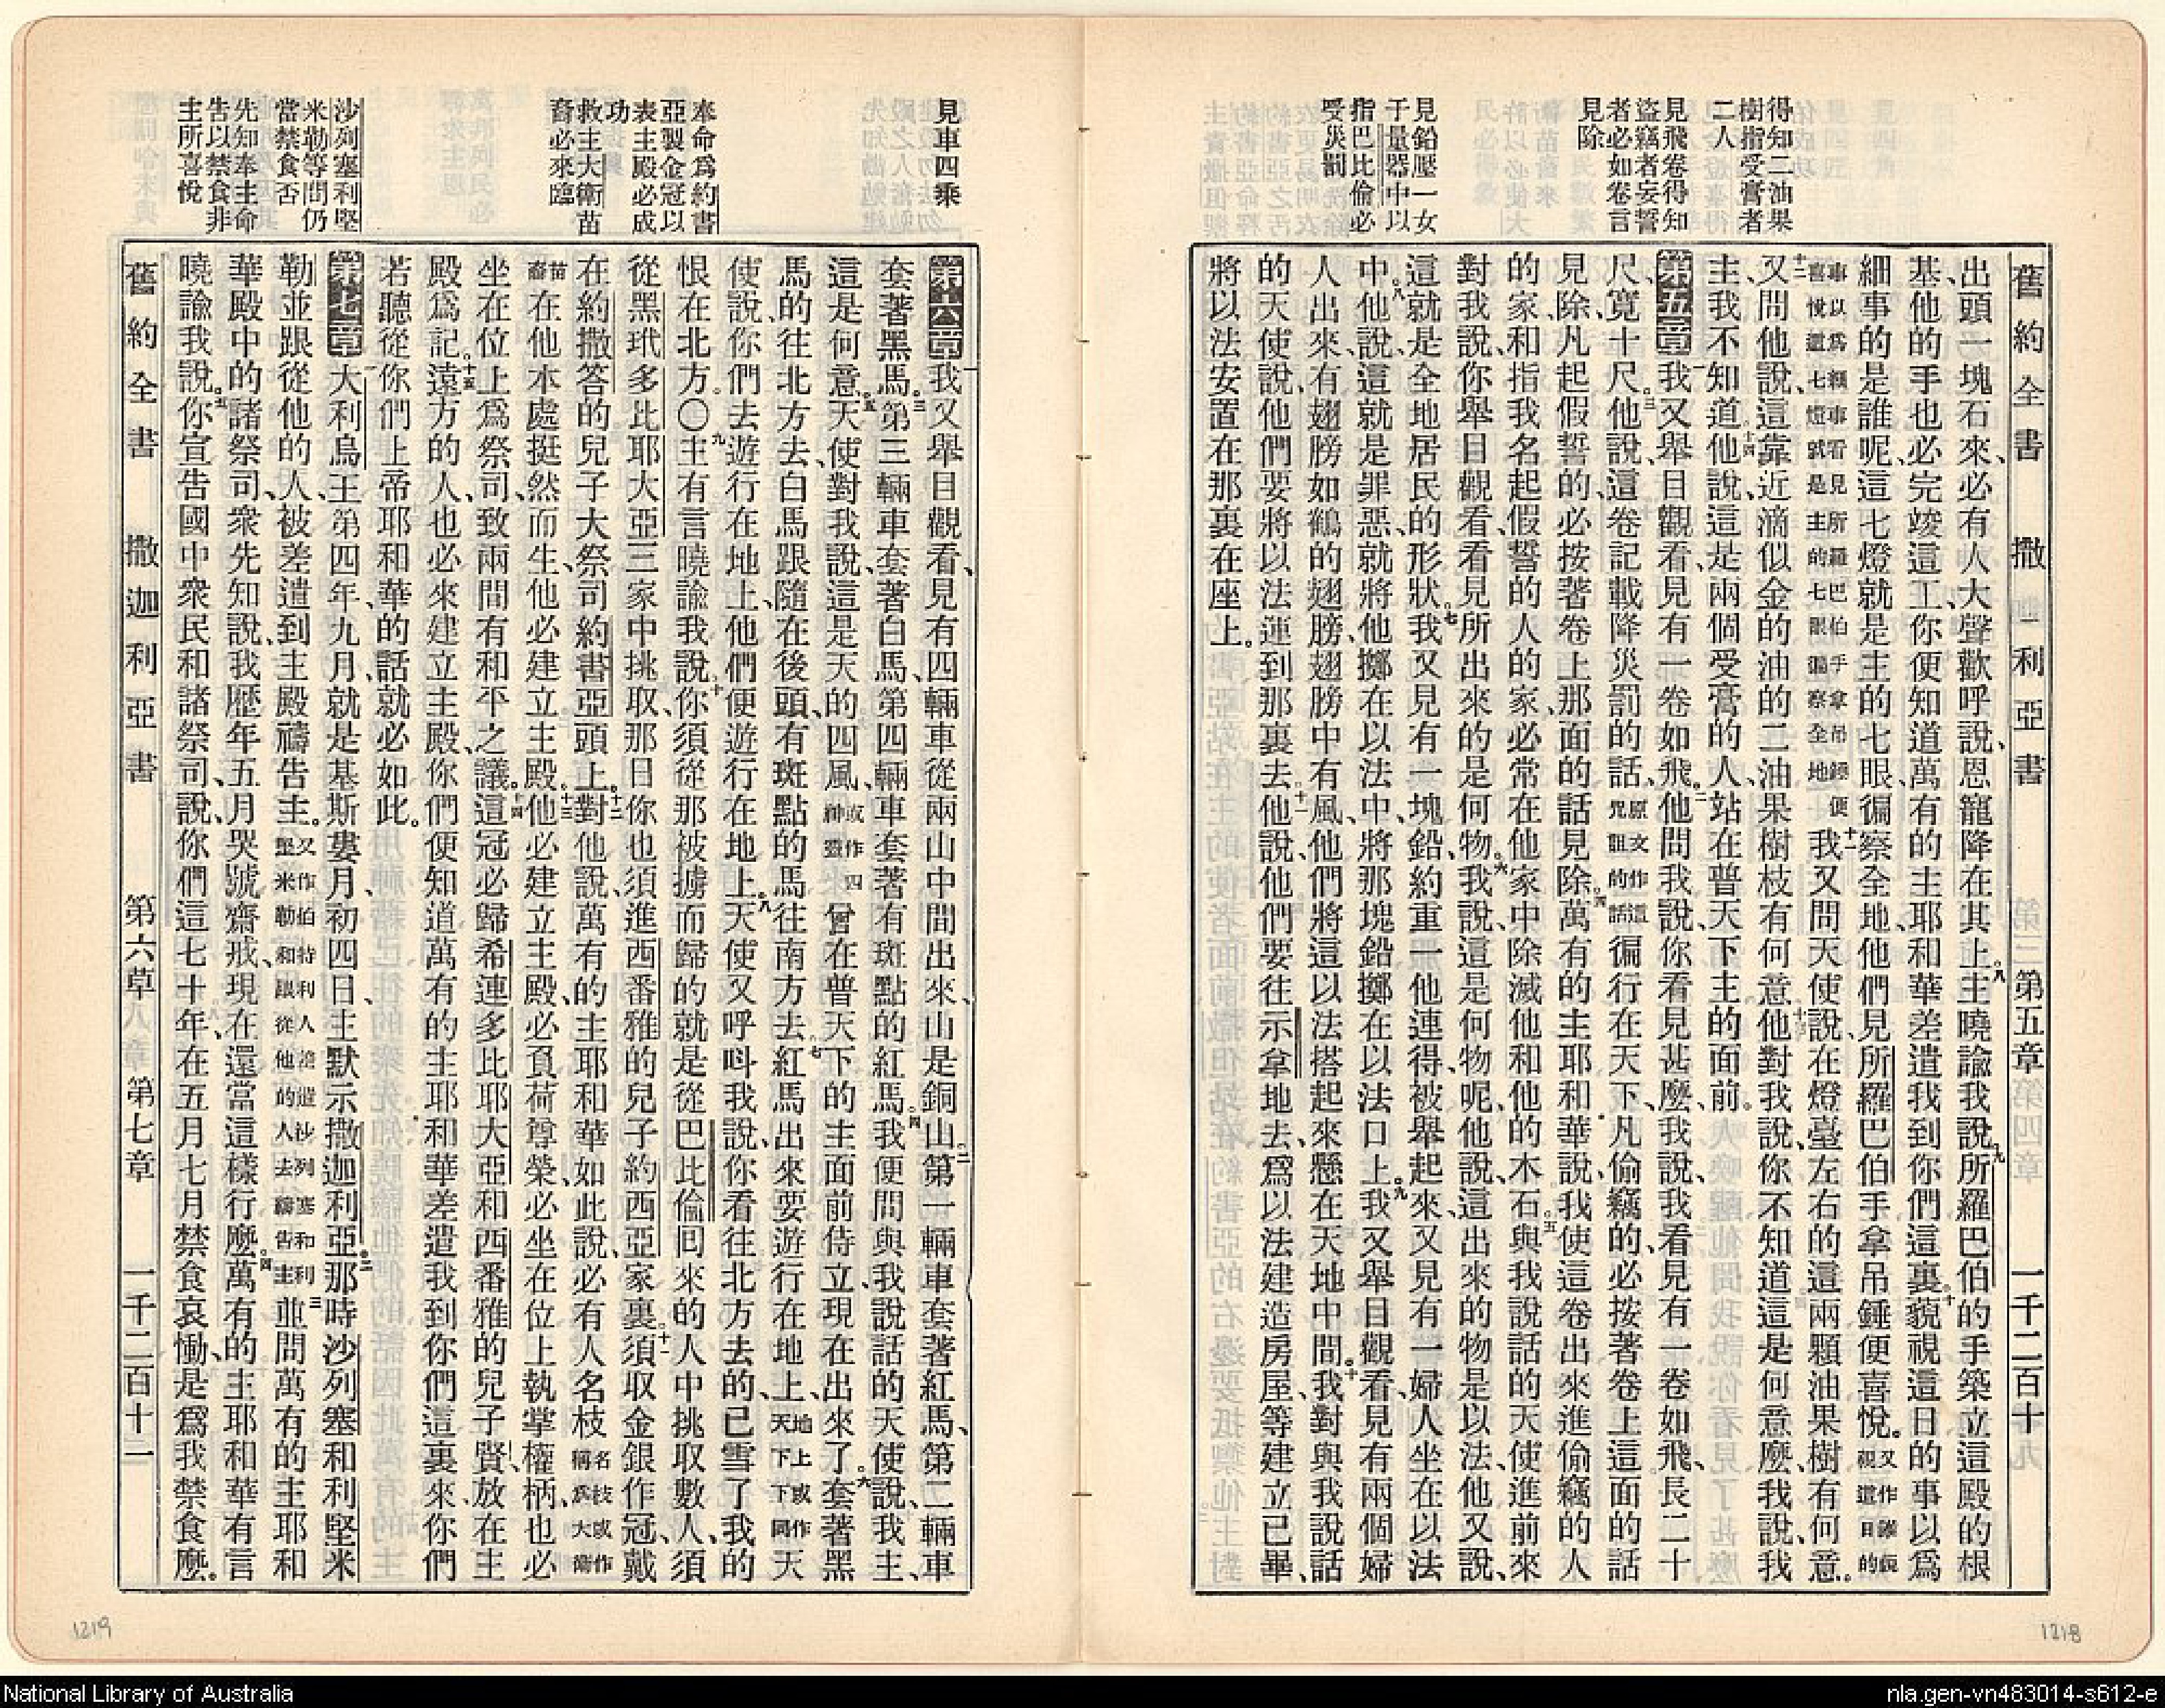 得知二油果
樹指受膏者
二人
見飛卷得知
盜竊者妄誓
者必如卷言
見除
見鉛壓一女
于量器中以
指巴比倫必
受災罰
舊約全書 撒迦利亞書 第五章 一千二百十
出頭一塊石來、必有人大聲歡呼說、恩寵降在其上。八主曉諭我說、九所羅巴伯的手築立這殿的根
基、他的手也必完竣這工、你便知道萬有的主耶和華差遣我到你們這裏。十藐視這日的事以爲
細事的是誰呢、這七燈就是主的七眼、徧察全地、他們見所羅巴伯手拿吊錘便喜悅。又作誰藐視這日的
事以爲細事看見所羅巴伯手拿吊錘便喜悅這七燈就是主的七眼徧察全地十一我又問天使說、在燈臺左右的這兩顆油果樹有何意。
十二又問他說、這靠近滴似金的油的二油果樹枝有何意。十三他對我說、你不知道這是何意麼、我說、我
主、我不知道。十四他說、這是兩個受膏的人、站在普天下主的面前。
第五章一我又舉目觀看、見有一卷如飛。二他問我說、你看見甚麼、我說、我看見有一卷如飛、長二十
尺、寬十尺。三他說、這卷記載降災罰的話、原文作這咒詛的話徧行在天下、凡偷竊的、必按著卷上這面的話
見除、凡起假誓的、必按著卷上那面的話見除。四萬有的主耶和華說、我使這卷出來、進偷竊的人
的家、和指我名起假誓的人的家、必常在他家中、除滅他和他的木石。五與我說話的天使進前來
對我說、你舉目觀看、看見所出來的是何物。六我說、這是何物呢、他說、這出來的物是以法、他又說、
這就是全地居民的形狀。七我又見有一塊鉛、約重一他連得、被舉起來、又見有一婦人坐在以法
中。八他說、這就是罪惡、就將他擲在以法中、將那塊鉛擲在以法口上。九我又舉目觀看、見有兩個婦
人出來、有翅膀如鶴的翅膀、翅膀中有風、他們將這以法搭起來、懸在天地中間。十我對與我說話
的天使說、他們要將以法運到那裏去。十一他說、他們要往示拿地去、爲以法建造房屋、等建立已畢、
將以法安置在那裏在座上。
1218
見車四乘
奉命爲約書
亞製金冠以
表主殿必成
功
救主大衞苗
裔必來臨
沙列塞利堅
米勒等問仍
當禁食否
先知奉主命
告以禁食非
主所喜悅
第六章一我又舉目觀看、見有四輛車從兩山中間出來、山是銅山。二第一輛車套著紅馬、第二輛車
套著黑馬。三第三輛車套著白馬、第四輛車套著有斑點的紅馬。四我便問與我說話的天使說、我主、
這是何意。五天使對我說、這是天的四風、或作四神靈曾在普天下的主面前侍立、現在出來了。六套著黑
馬的往北方去、白馬跟隨在後頭、有斑點的馬往南方去。七紅馬出來要遊行在地上、地上或作天下下同天
使說、你們去遊行在地上、他們便遊行在地上。八天使又呼呌我說、你看往北方去的、已雪了我的
恨在北方。〇九主有言曉諭我說、十你須從那被擄而歸的、就是從巴比倫回來的人中、挑取數人、須
從黑玳多比耶大亞三家中挑取、那日你也須進西番雅的兒子約西亞家裏。十一須取金銀作冠、戴
在約撒答的兒子大祭司約書亞頭上。十二對他說、萬有的主耶和華如此說、必有人名枝名枝或作稱爲大衞
苗裔在他本處挺然而生、他必建立主殿。十三他必建立主殿、必負荷尊榮、必坐在位上執掌權柄、也必
坐在位上爲祭司、致兩間有和平之議。十四這冠必歸希連多比耶大亞和西番雅的兒子賢、放在主
殿爲記。十五遠方的人也必來建立主殿、你們便知道萬有的主耶和華差遣我到你們這裏來、你們
若聽從你們上帝耶和華的話、就必如此。
第七章一大利烏王第四年九月、就是基斯婁月、初四日、主默示撒迦利亞。二那時沙列塞和利堅米
勒並跟從他的人、被差遣到主殿禱告主。又作伯特利人遣沙列塞和利堅米勒和跟從他的人去禱告主三並問萬有的主耶和
華殿中的諸祭司、衆先知說、我歷年五月哭號齋戒、現在還當這樣行麼。四萬有的主耶和華有言
曉諭我說。五你宣告國中衆民和諸祭司、說、你們這七十年、在五月七月禁食哀慟、是爲我禁食麼。
舊約全書 撒迦利亞書 第六章 第七章 一千二百十二
1219
National Library of Australia
nla.gen-vn483014-s612-e